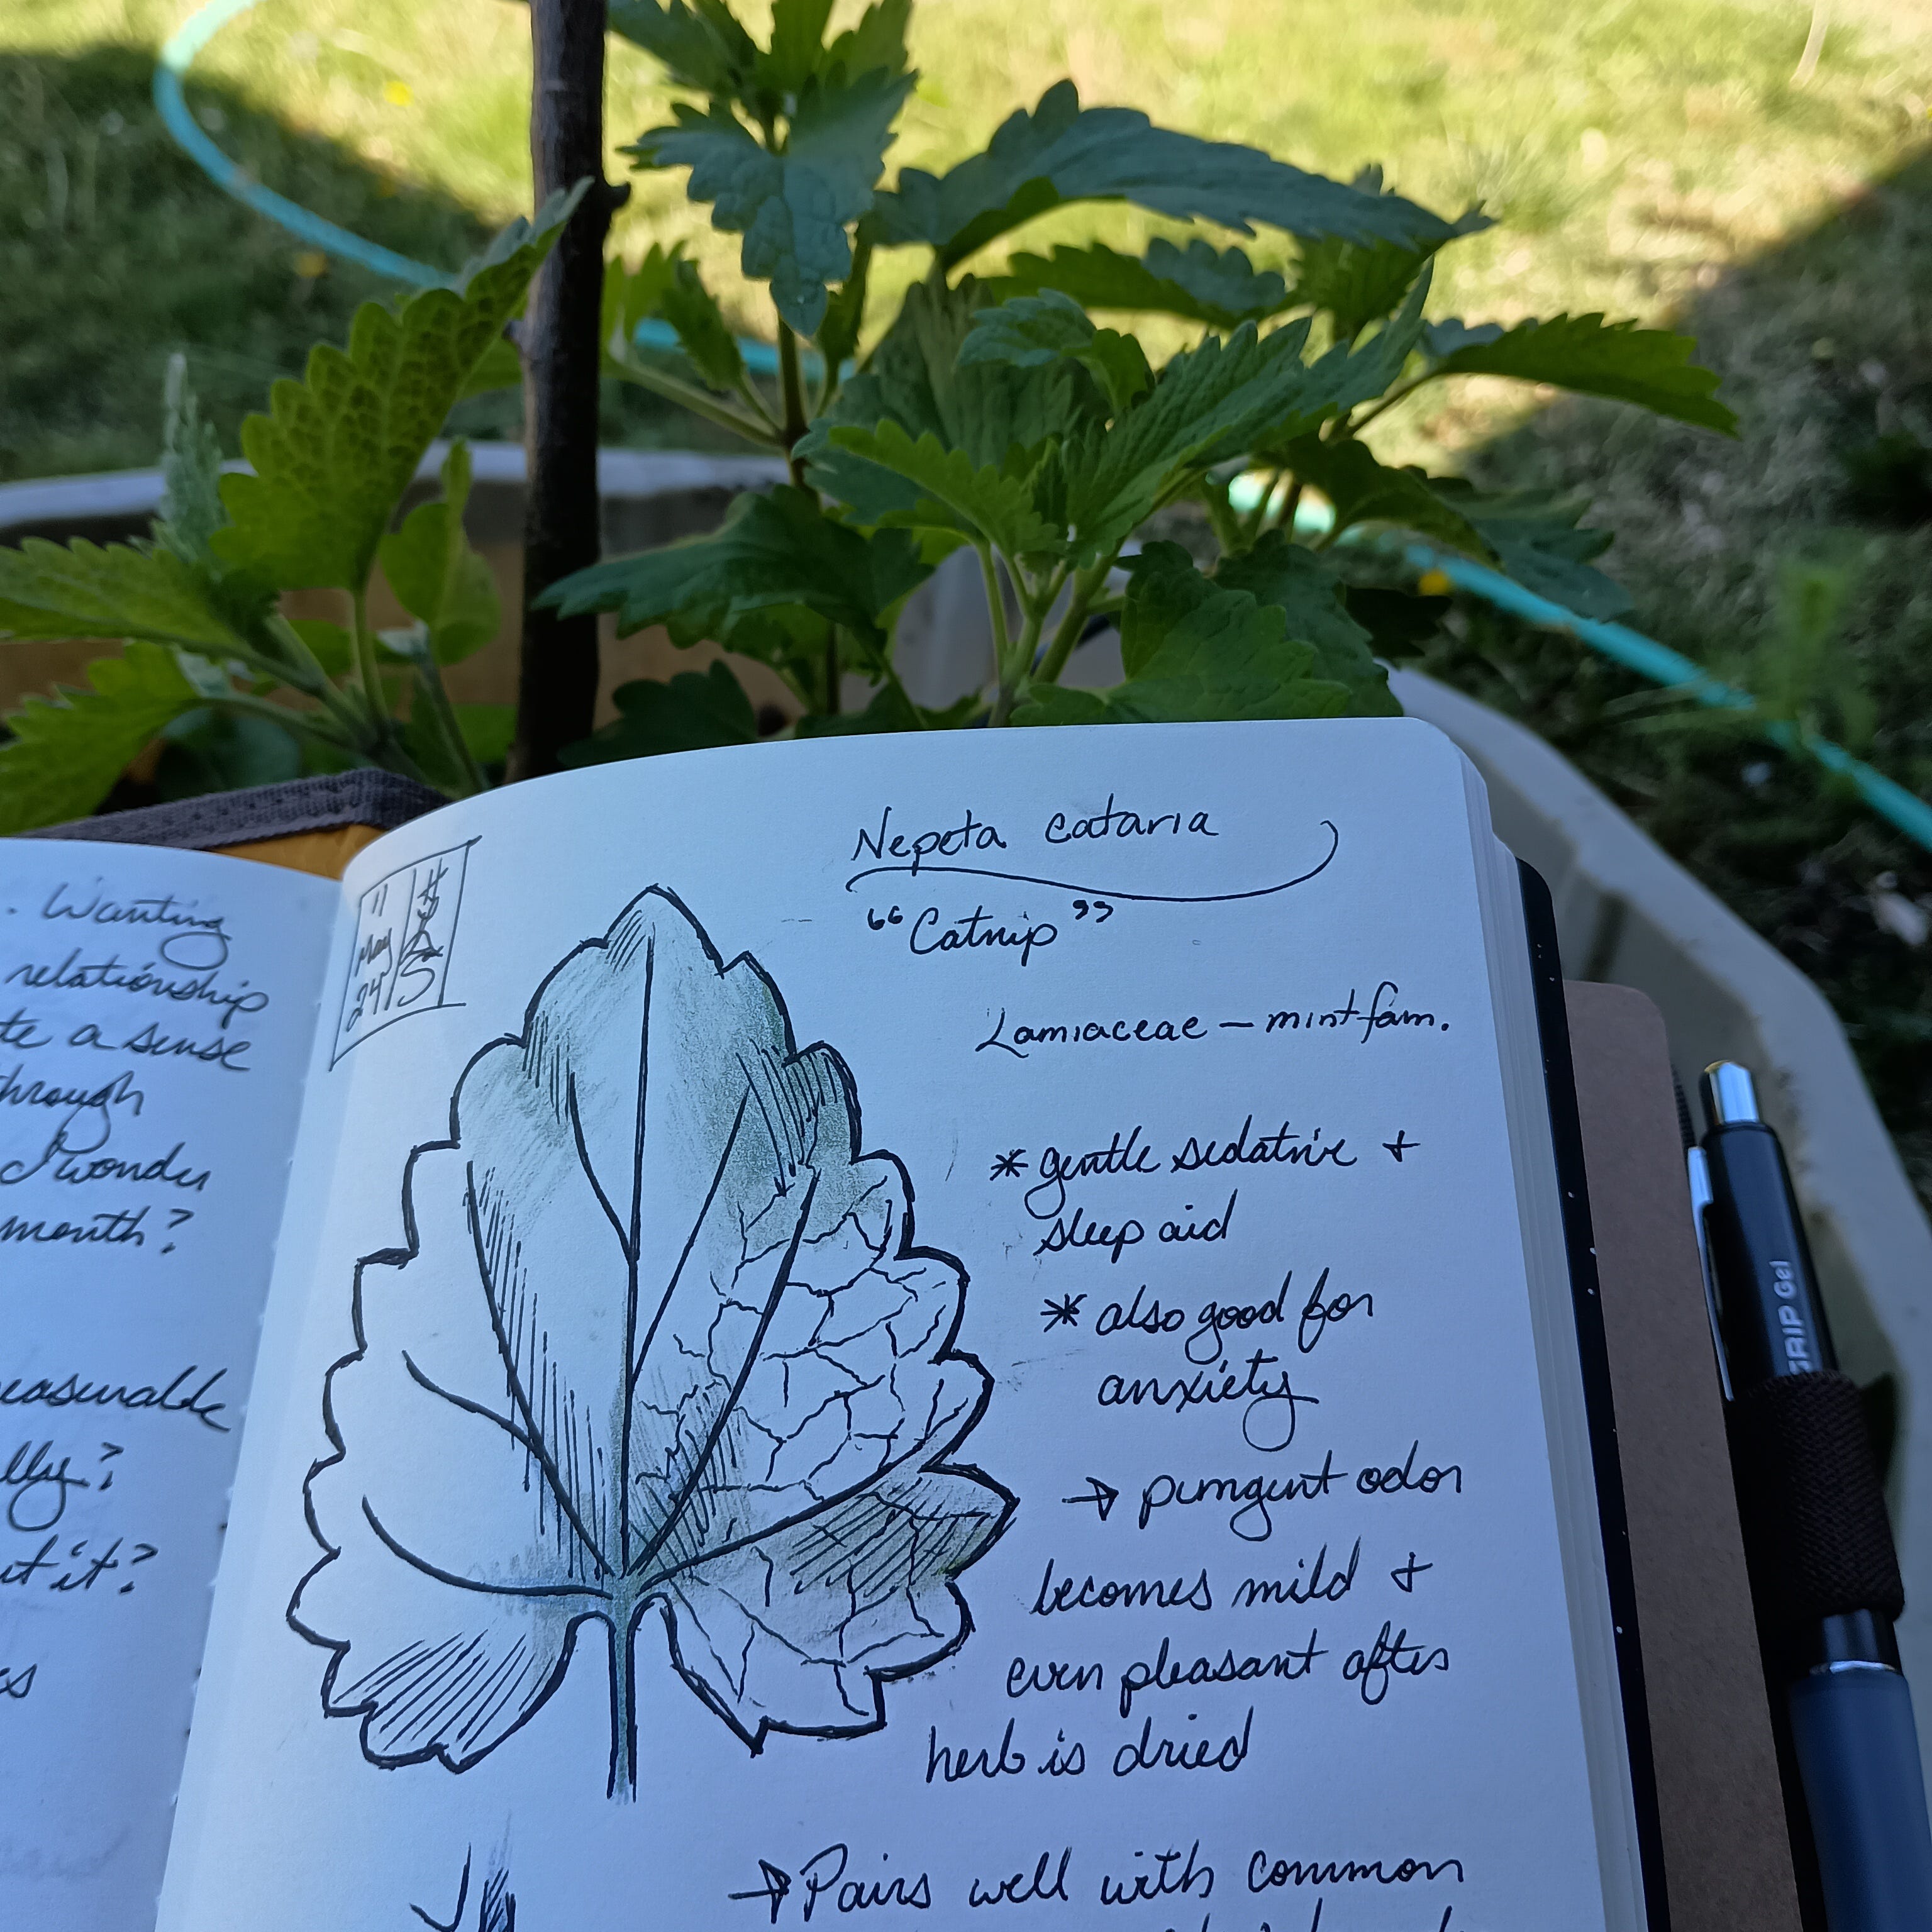 . Wanting
relationship
te a sense
through
I wonder
month?
easurable
lly?
ut it?
s
11
May
24
Nepeta cataria
"Catnip"
Lamiaceae - mint fam.
* gentle sedative +
sleep aid
* also good for
anxiety
→ pungent odor
becomes mild +
even pleasant after
herb is dried
→ Pairs well with common
GRIP Gel